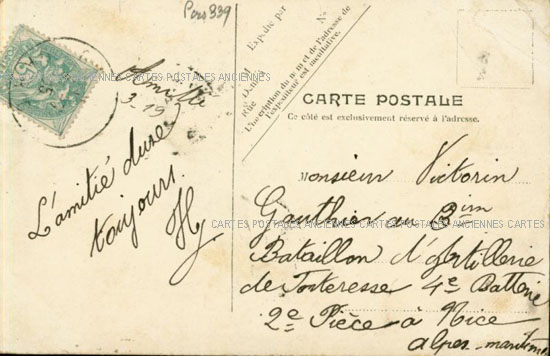 Pers 339
Expédié par
M
Demt
Rue
N°
L'inscription du nom et de l'adresse de
l'expéditeur est facultative.
CARTE POSTALE
Ce côté est exclusivement réservé à l'adresse.
Amitié
3.19
L'amitié dure
toujours.
H
Monsieur Victorin
Gauthier au 8im
Bataillon d'Artillerie
de Forteresse 4e Batterie
2e Pièce à Nice
Alpes-maritimes
CARTES POSTALES ANCIENNES CARTES POSTALES ANCIENNES
CARTES POSTALES ANCIENNES CARTES POSTALES ANCIENNES